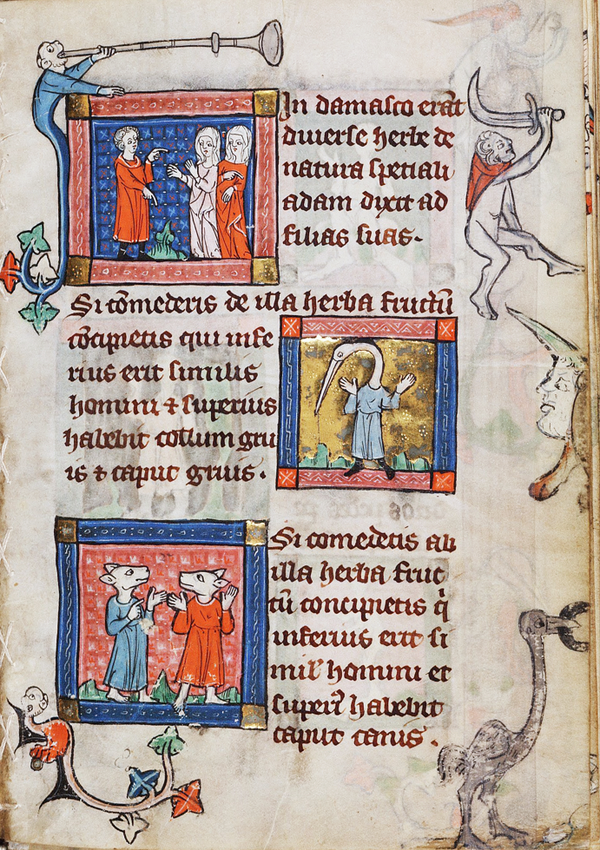 In damasco erāt
diuerse herbe de
natura spetiali
adam dixit ad
filias suas.
Si cōmederis de illa herba fructū
cōcipietis qui infe
rius erit similis
homini ⁊ superius
habebit collum gru
is ⁊ caput gruis.
Si comedetis ab
illa herba fruc
tū concipietis q̇
inferius erit si
mil' homini et
superi᾽ habebit
caput canis.